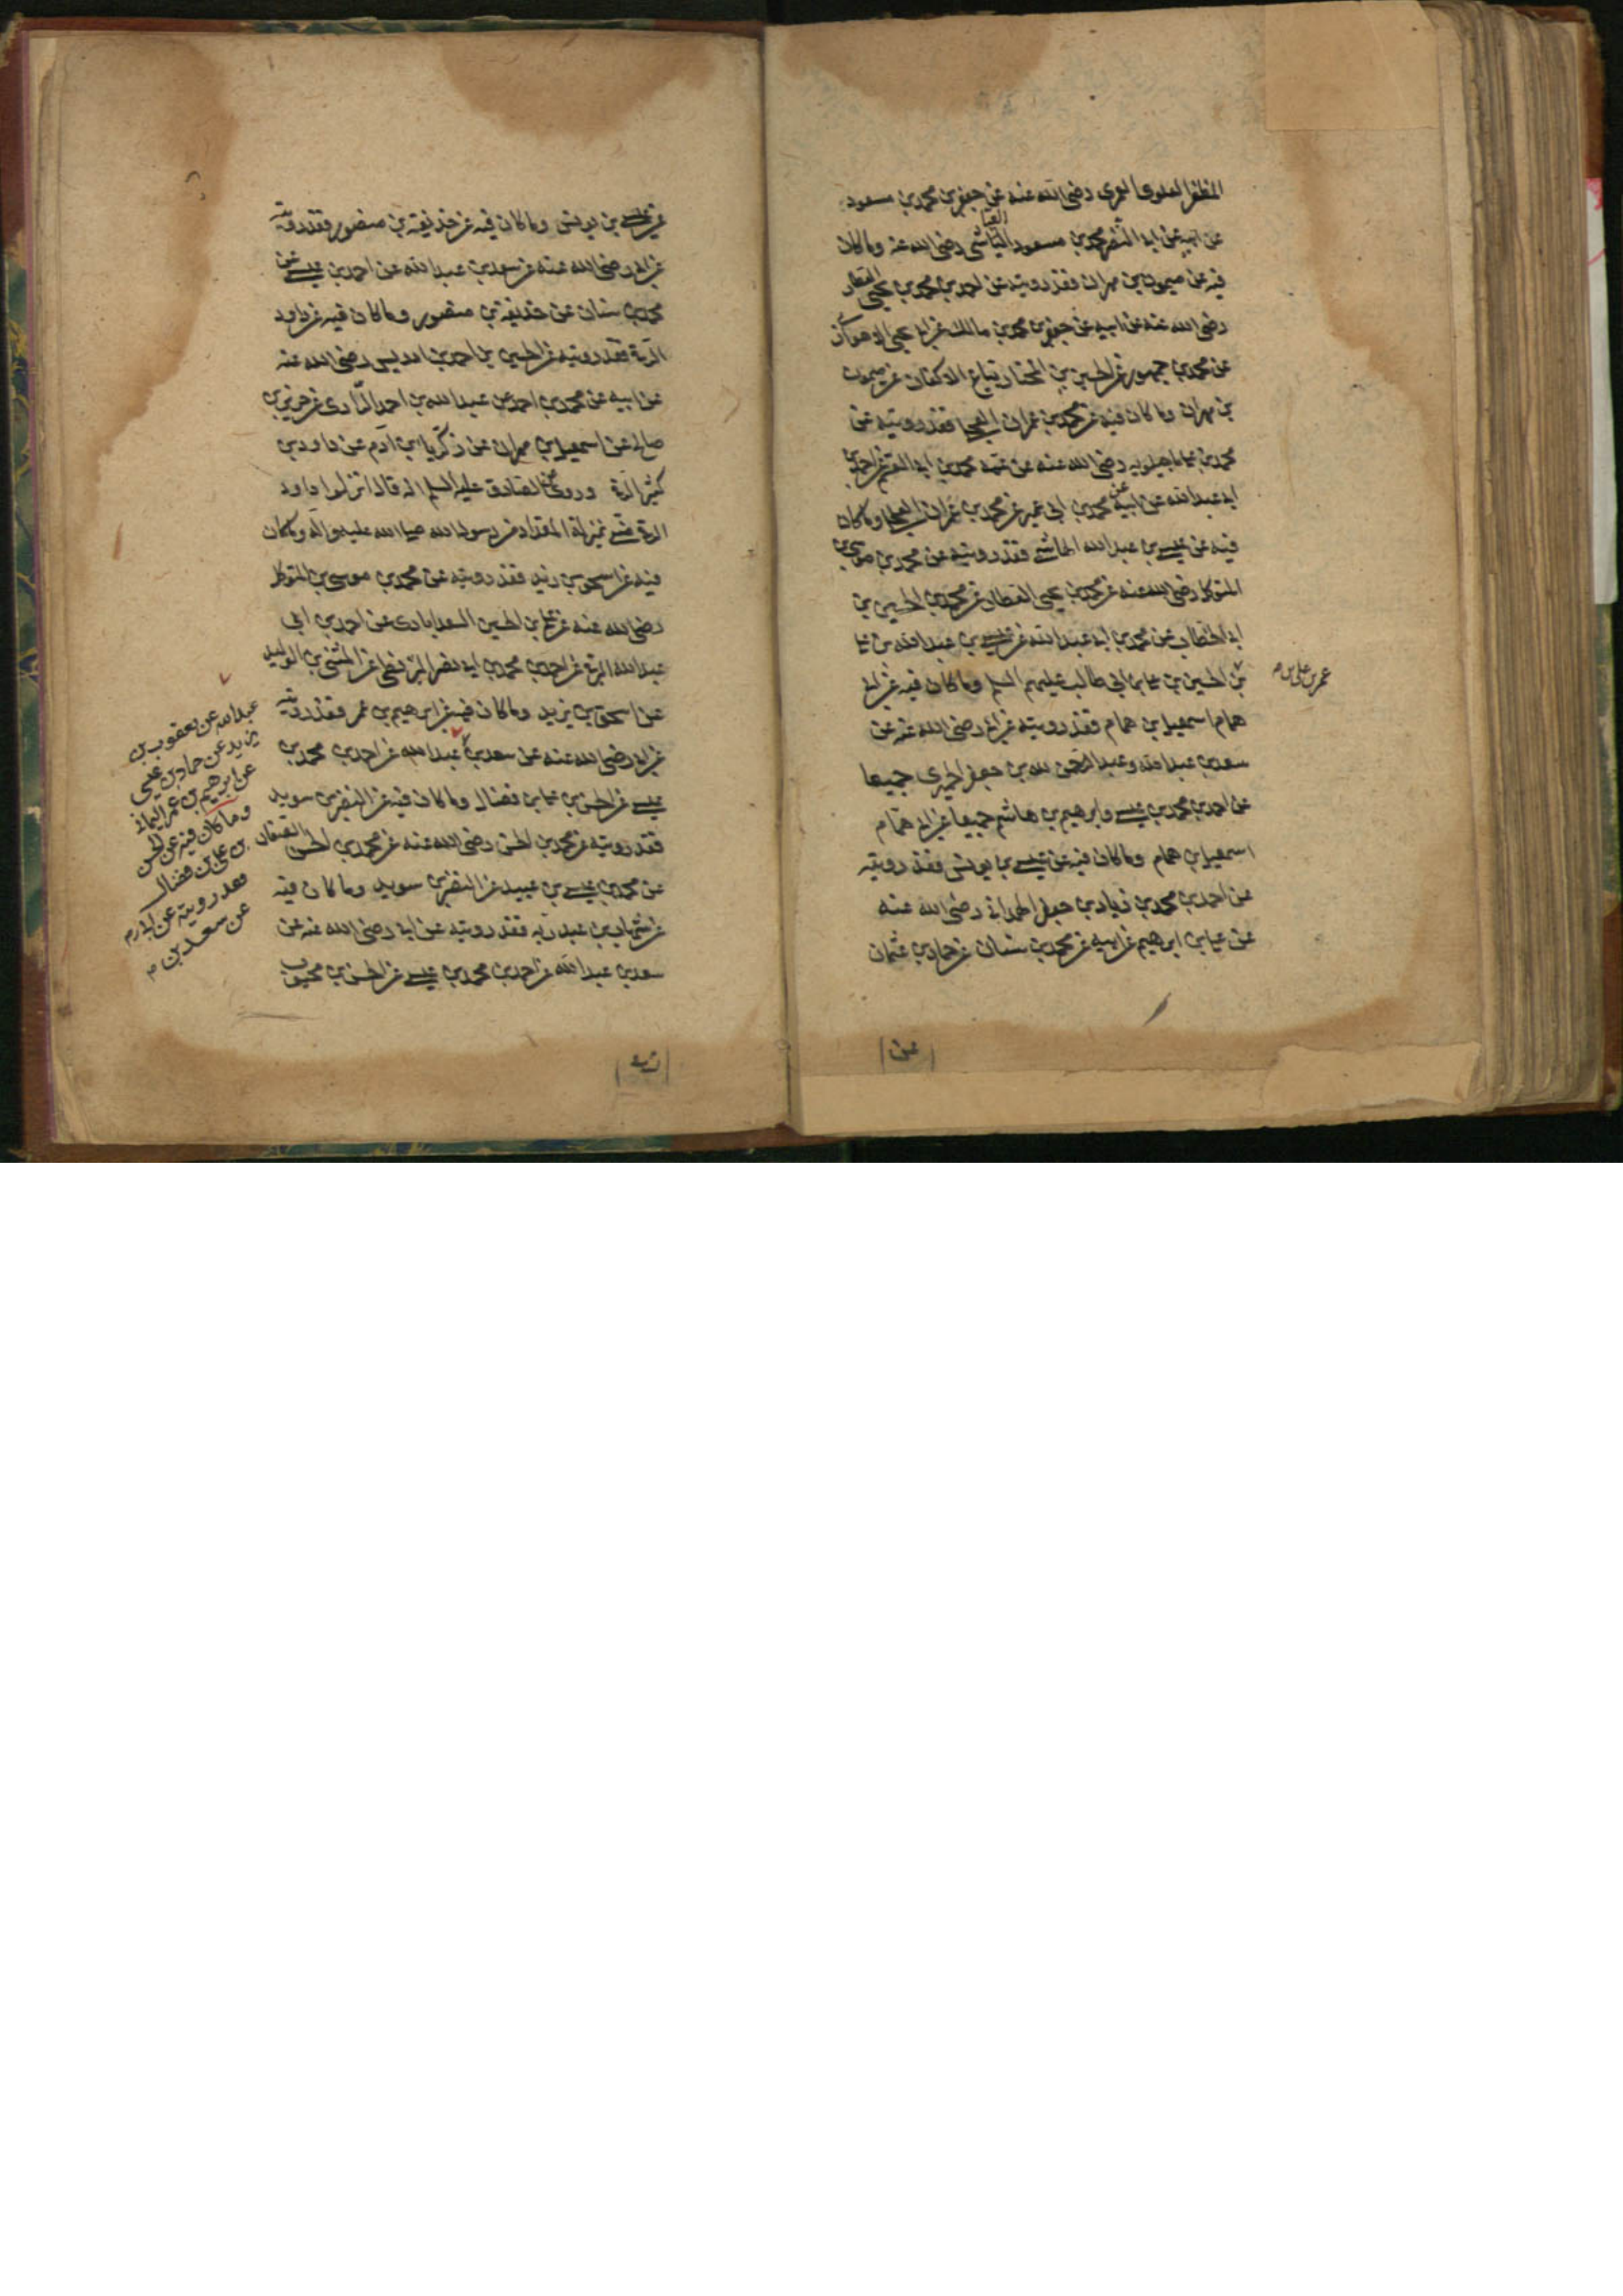 المظفر العلوى العمرى رضى الله عنه عن جعفر بن محمد بن مسعود
عن ابيه عن ابى النضر محمد بن مسعود العياشى رضى الله عنه وما كان
فيه عن ميمون بن مهران فقد رويته عن احمد بن محمد بن يحيى العطار
رضى الله عنه عن ابيه عن جعفر بن محمد بن مالك عن ابى يحيى الاهوازى
عن محمد بن جمهور عن الحسين بن المختار بياع الاكفان عن ميمون
بن مهران وما كان فيه عن محمد بن عمران العجلى فقد رويته عن
محمد بن على ماجيلويه رضى الله عنه عن عمه محمد بن ابى القسم عن احمد بن
ابى عبد الله عن ابيه عن محمد بن ابى عمير عن محمد بن عمران العجلى وما كان
فيه عن عيسى بن عبد الله الهاشمى فقد رويته عن محمد بن موسى بن
المتوكل رضى الله عنه عن محمد بن يحيى العطار عن محمد بن الحسين بن
ابى الخطاب عن محمد بن ابى عبد الله عن عيسى بن عبد الله بن على
عمر بن على بن م
بن الحسين بن على بن ابى طالب عليهم السلم وما كان فيه عن ابى
همام اسمعيل بن همام فقد رويته عن ابى رضى الله عنه عن
سعد بن عبد الله وعبد الله بن جعفر الحميرى جميعا
عن احمد بن محمد بن عيسى وابرهيم بن هاشم جميعا عن ابى همام
اسمعيل بن همام وما كان فيه عن عيسى بن يونس فقد رويته
عن احمد بن محمد بن زياد بن جعفر الهمدانى رضى الله عنه
عن على بن ابرهيم عن ابيه عن محمد بن سنان عن حماد بن عثمان
عن
عن عيسى بن يونس وما كان فيه عن حذيفة بن منصور فقد رويته
عن ابى رضى الله عنه عن سعد بن عبد الله عن احمد بن عيسى عن
محمد بن سنان عن حذيفة بن منصور وما كان فيه عن داود
الرقى فقد رويته عن الحسين بن احمد بن ادريس رضى الله عنه
عن ابيه عن محمد بن احمد عن عبد الله بن احمد الرازى عن حريز بن
صالح عن اسمعيل بن مهران عن زكريا بن آدم عن داود بن
كثير الرقى وروى عن الصادق عليه السلم انه قال انزلوا داود
الرقى منى بمنزلة المقداد من رسول الله صلى الله عليه وآله وما كان
فيه عن اسحق بن يزيد فقد رويته عن محمد بن موسى بن المتوكل
رضى الله عنه عن على بن الحسين السعدابادى عن احمد بن ابى
عبد الله البرقى عن احمد بن محمد بن ابى نصر البزنطى عن المثنى بن الوليد
عن اسحق بن يزيد وما كان فيه عن ابرهيم بن عمر فقد رويته
عن ابى رضى الله عنه عن سعد بن عبد الله عن احمد بن محمد بن
عيسى عن الحسن بن على بن فضال وما كان فيه عن النضر بن سويد
فقد رويته عن محمد بن الحسن رضى الله عنه عن محمد بن الحسن الصفار
عن محمد بن عيسى بن عبيد عن النضر بن سويد وما كان فيه
عن شهاب بن عبد ربه فقد رويته عن ابى رضى الله عنه عن
سعد بن عبد الله عن احمد بن محمد بن عيسى عن الحسن بن محبوب
عبد الله عن يعقوب بن
يزيد عن حماد بن عيسى
عن ابرهيم بن عمر اليمانى
وما كان فيه عن الحسن
بن على بن فضال
فقد رويته عن ابى رم
عن سعد بن م